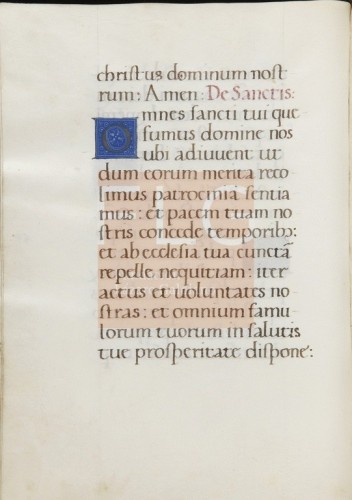 christus dominum nost
rum: Amen: De Sanctis:
Omnes sancti tui que
sumus domine nos
ubi adiuuent ut
dum eorum merita reco
limus patrocinia sentia
mus: et pacem tuam no
stris concede temporibꝫ:
et ab ecclesia tua cunctā
repelle nequitiam: iter
actus et uoluntates no
stras: et omnium famu
lorum tuorum in salutis
tue prosperitate dispone:
FLG